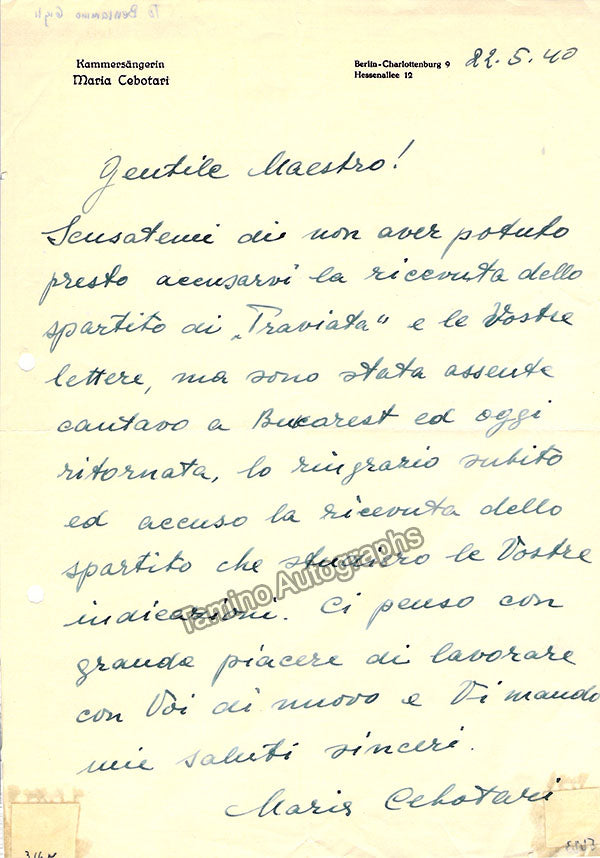 To Beniamino Gigli
Kammersängerin
Maria Cebotari
Berlin-Charlottenburg 9
Hessenallee 12
22.5.40
Gentile Maestro!
Scusatemi di non aver potuto
presto accusarvi la ricevuta dello
spartito di „Traviata“ e le Vostre
lettere, ma sono stata assente
cantavo a Bukarest ed oggi
ritornata, lo ringrazio subito
ed accuso la ricevuta dello
spartito che studiero le Vostre
indicazioni. Ci penso con
grande piacere di lavorare
con Voi di nuovo e Vi mando
mie saluti sinceri.
Maria Cebotari
Tamino Autographs